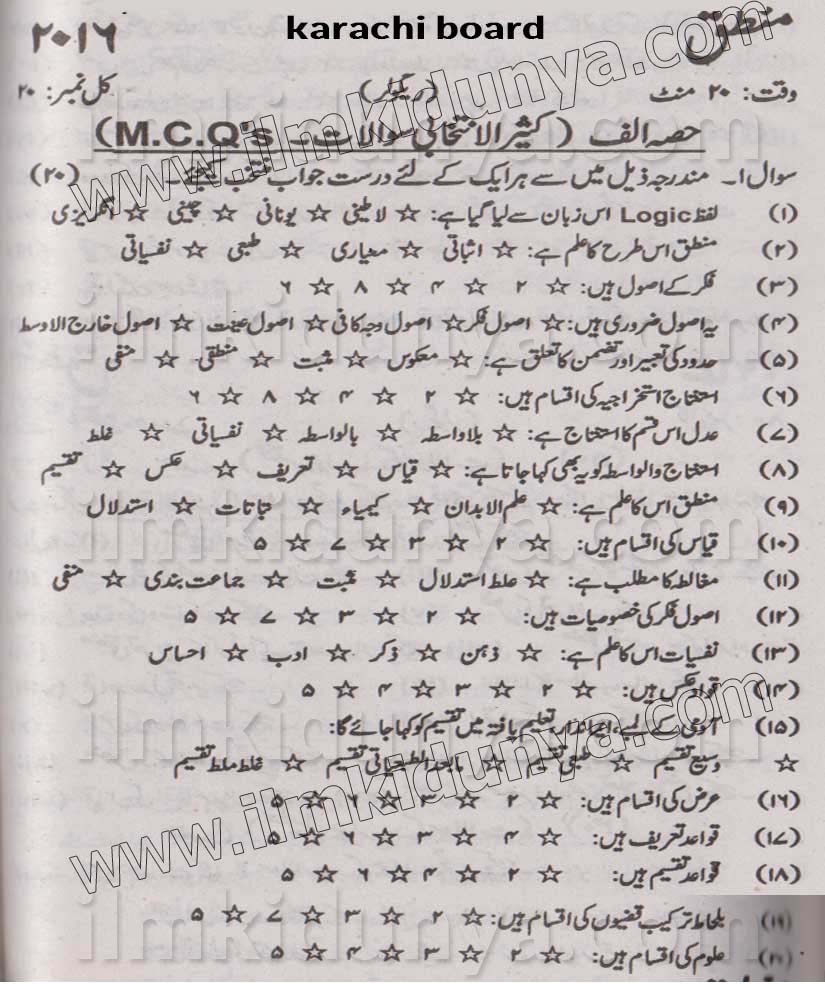 karachi board
منطق ۲۰۱۶
وقت: ۲۰ منٹ (ریگولر) کل نمبر: ۲۰
حصہ الف (کثیر الانتخابی سوالات - M.C.Q's)
سوال ۱۔ مندرجہ ذیل میں سے ہر ایک کے لئے درست جواب منتخب کیجئے۔ (۲۰)
(۱) لفظ Logic اس زبان سے لیا گیا ہے: ☆ لاطینی ☆ یونانی ☆ چینی ☆ انگریزی
(۲) منطق اس طرح کا علم ہے: ☆ اثباتی ☆ معیاری ☆ طبعی ☆ نفسیاتی
(۳) فکر کے اصول ہیں: ☆ ۲ ☆ ۴ ☆ ۸ ☆ ۶
(۴) یہ اصول ضروری ہیں: ☆ اصول فکر ☆ اصول وجہ کافی ☆ اصول عینت ☆ اصول خارج الاوسط
(۵) حدود کی تعبیر اور تضمن کا تعلق ہے: ☆ معکوس ☆ مثبت ☆ منطقی ☆ منفی
(۶) استنتاج استخراجیہ کی اقسام ہیں: ☆ ۲ ☆ ۴ ☆ ۸ ☆ ۶
(۷) عدل اس قسم کا استنتاج ہے: ☆ بلاواسطہ ☆ بالواسطہ ☆ نفسیاتی ☆ غلط
(۸) استنتاج والواسطہ کو یہ بھی کہا جاتا ہے: ☆ قیاس ☆ تعریف ☆ عکس ☆ تقسیم
(۹) منطق اس کا علم ہے: ☆ علم الابدان ☆ کیمیاء ☆ نباتات ☆ استدلال
(۱۰) قیاس کی اقسام ہیں: ☆ ۲ ☆ ۳ ☆ ۷ ☆ ۵
(۱۱) مغالطہ کا مطلب ہے: ☆ غلط استدلال ☆ مثبت ☆ جماعت بندی ☆ منفی
(۱۲) اصول فکر کی خصوصیات ہیں: ☆ ۲ ☆ ۳ ☆ ۷ ☆ ۵
(۱۳) نفسیات اس کا علم ہے: ☆ ذہن ☆ ذکر ☆ ادب ☆ احساس
(۱۴) قواعد عکس ہیں: ☆ ۲ ☆ ۳ ☆ ۴ ☆ ۵
(۱۵) آدمی کے لمبے، ایماندار، تعلیم یافتہ میں تقسیم کو کہا جائے گا:
☆ وسیع تقسیم ☆ طبعی تقسیم ☆ مابعدالطبیعیاتی تقسیم ☆ غلط ملط تقسیم
(۱۶) عرض کی اقسام ہیں: ☆ ۲ ☆ ۳ ☆ ۶ ☆ ۵
(۱۷) قواعد تعریف ہیں: ☆ ۴ ☆ ۳ ☆ ۶ ☆ ۵
(۱۸) قواعد تقسیم ہیں: ☆ ۲ ☆ ۴ ☆ ۶ ☆ ۵
(۱۹) بلحاظ ترکیب قضیوں کی اقسام ہیں: ☆ ۲ ☆ ۳ ☆ ۷ ☆ ۵
(۲۰) علوم کی اقسام ہیں: ☆ ۲ ☆ ۳ ☆ ۴ ☆ ۵
www.ilmkidunya.com
www.ilmkidunya.com
ilmkidunya.com
ilmkidunya.com
ilmkidunya.com
ilmkidunya.com
ilmkidunya.com